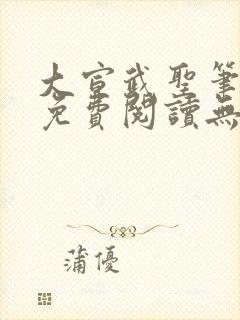 大宣武聖筆
免費閱讀無
蒲優